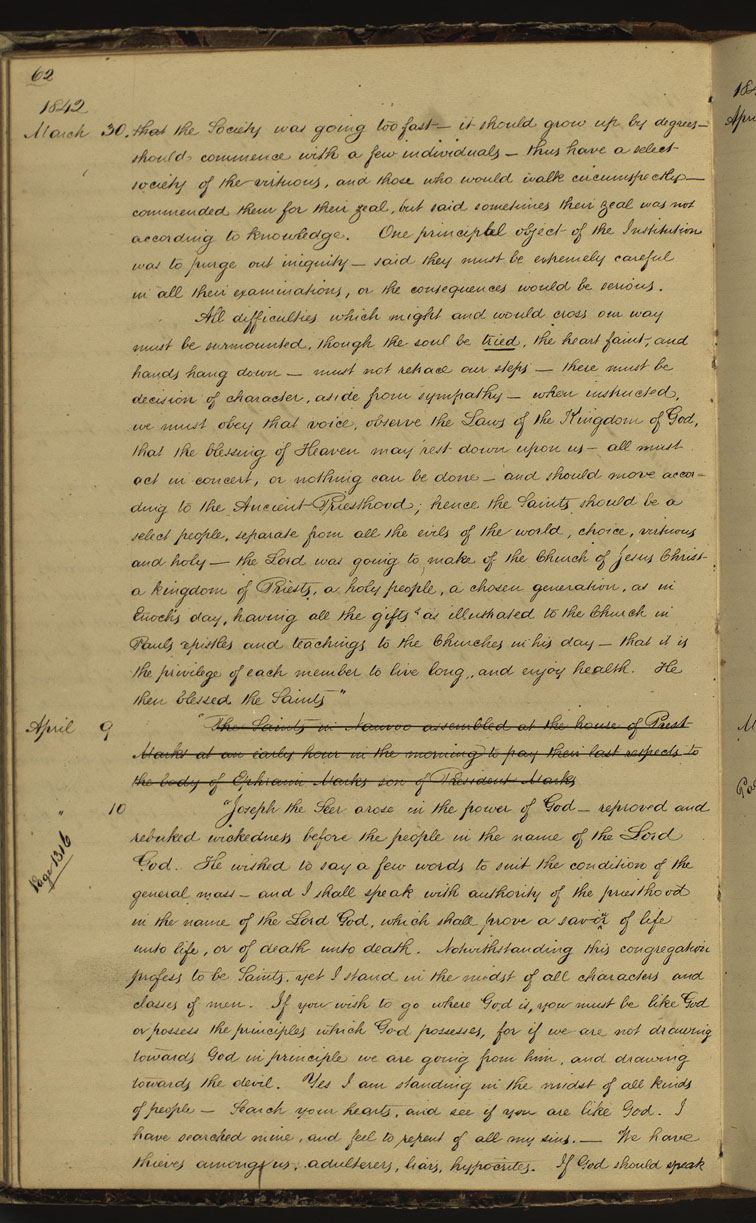 62
1842
March 30. that the Society was going too fast — it should grow up by degrees —
should commence with a few individuals — thus have a select
society of the virtuous, and those who would walk circumspectly —
commended them for their zeal, but said sometimes their zeal was not
according to knowledge. One principal object of the Institution
was to purge out iniquity — said they must be extremely careful
in all their examinations, or the consequences would be serious.
All difficulties which might and would cross our way
must be surmounted, though the soul be tried, the heart faint, and
hands hang down — must not retrace our steps — there must be
decision of character, aside from sympathy — when instructed,
we must obey that voice, observe the Laws of the Kingdom of God,
that the blessing of Heaven may rest down upon us — all must
act in concert, or nothing can be done — and should move accor-
ding to the Ancient Priesthood; hence the Saints should be a
select people, separate from all the evils of the world, choice, virtuous
and holy — the Lord was going to make of the Church of Jesus Christ
a kingdom of Priests, a holy people, a chosen generation, as in
Enoch's day, having all the gifts as illustrated to the Church in
Pauls epistles and teachings to the Churches in his day — that it is
the privilege of each member to live long, and enjoy health. He
then blessed the Saints"
April 9 "The Saints in Nauvoo assembled at the house of Prest
Marks at an early hour in the morning to pay their last respects to
the body of Ephraim Marks son of President Marks
" 10 "Joseph the Seer arose in the power of God — reproved and
rebuked wickedness before the people in the name of the Lord
Page 1316
God. He wished to say a few words to suit the condition of the
general mass — and I shall speak with authority of the priesthood
in the name of the Lord God, which shall prove a savor of life
unto life, or of death unto death. Notwithstanding this congregation
profess to be Saints, yet I stand in the midst of all characters and
classes of men. If you wish to go where God is, you must be like God
or possess the principles which God possesses, for if we are not drawing
towards God in principle we are going from him, and drawing
towards the devil. Yes I am standing in the midst of all kinds
of people — Search your hearts, and see if you are like God. I
have searched mine, and feel to repent of all my sins. — We have
thieves among us, adulterers, liars, hypocrites. If God should speak
184
Apri
M
Pag